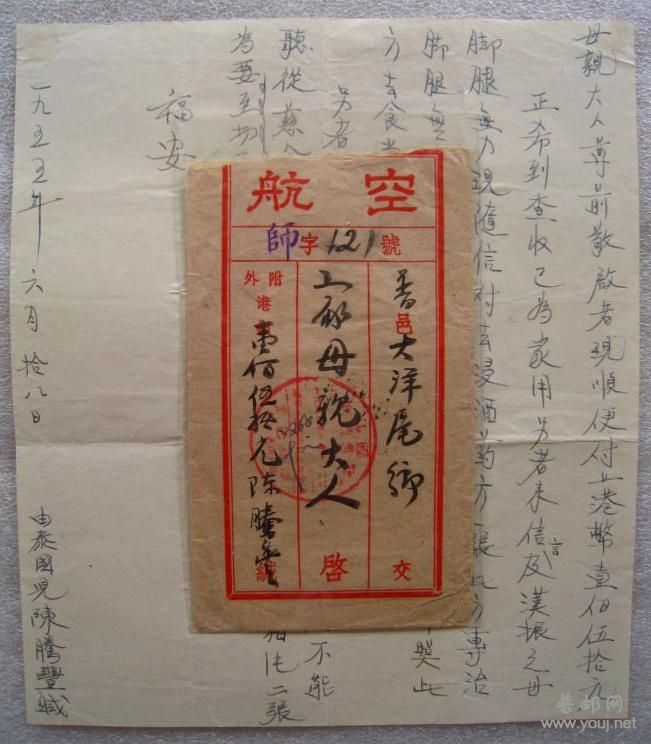 母親大人尊前敬啟者現順便付上港幣壹佰伍拾元
正希到查收已為家用另者來信言及漢振之母
脚腿無力現隨信付去浸酒药方一張此方專治
脚腿無
方去食
另者
聽從慈
為要至
不能
二張
福安
一九五五年六月拾八日
由泰國兒陳騰豐緘
航空
師字121號
普邑大洋尾鄉 交
母親大人 啓
外附港
壹佰伍拾元陳騰
善邮网
www.youj.net